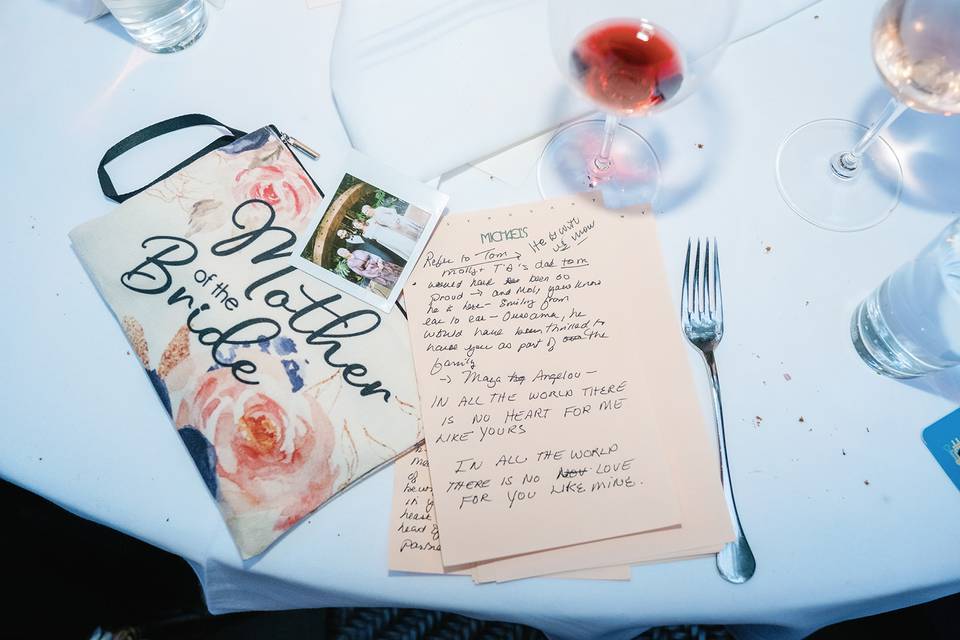 Mother
of the
Bride
MICHAELS
Refer to Tom → He is with
us now
Molly + T.J's dad tom
would have been so
proud → and Mols, you know
he is here - Smiling from
ear to ear - Oussama, he
would have been thrilled to
have you as part of the
family
→ Maya Angelou -
IN ALL THE WORLD THERE
IS NO HEART FOR ME
LIKE YOURS
IN ALL THE WORLD
THERE IS NO LOVE
FOR YOU LIKE MINE.
of
in y
heart
heart of